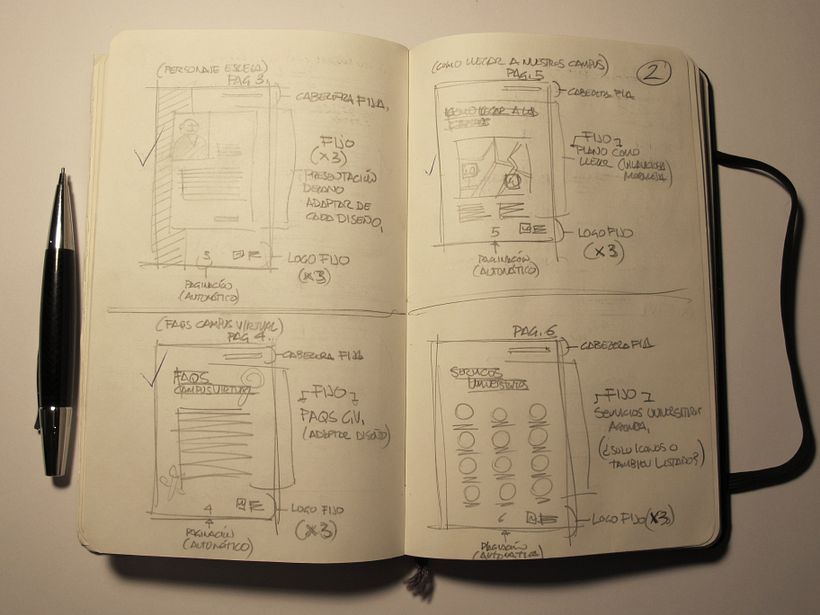 (PERSONAJE ESCUELA)
PAG 3.
CABECERA FIJA,
FIJO
(X3)
PRESENTACIÓN
DECANO
ADAPTAR DE
CADA DISEÑO,
3
LOGO FIJO
(X3)
PAGINACIÓN
(AUTOMÁTICO)
(FAQS CAMPUS VIRTUAL)
PAG 4.
CABECERA FIJA
FAQS
CAMPUS VIRTUAL
FIJO
FAQS C.V.,
(ADAPTAR DISEÑO)
4
LOGO FIJO
(X3)
PAGINACIÓN
(AUTOMÁTICO)
2
(COMO LLEGAR A NUESTROS CAMPUS)
PAG. 5
CABECERA FIJA
COMO LLEGAR A LOS
FIJO
PLANO COMO
LLEGAR
5
LOGO FIJO
(X3)
PAGINACIÓN
(AUTOMÁTICO)
PAG. 6
CABECERA FIJA
SERVICIOS
UNIVERSITARIOS
FIJO
SERVICIOS UNIVERSITARIOS
AGENDA,
(¿SOLO ICONOS O
TAMBIEN LISTADO?)
6
LOGO FIJO (X3)
PAGINACIÓN
(AUTOMÁTICA)